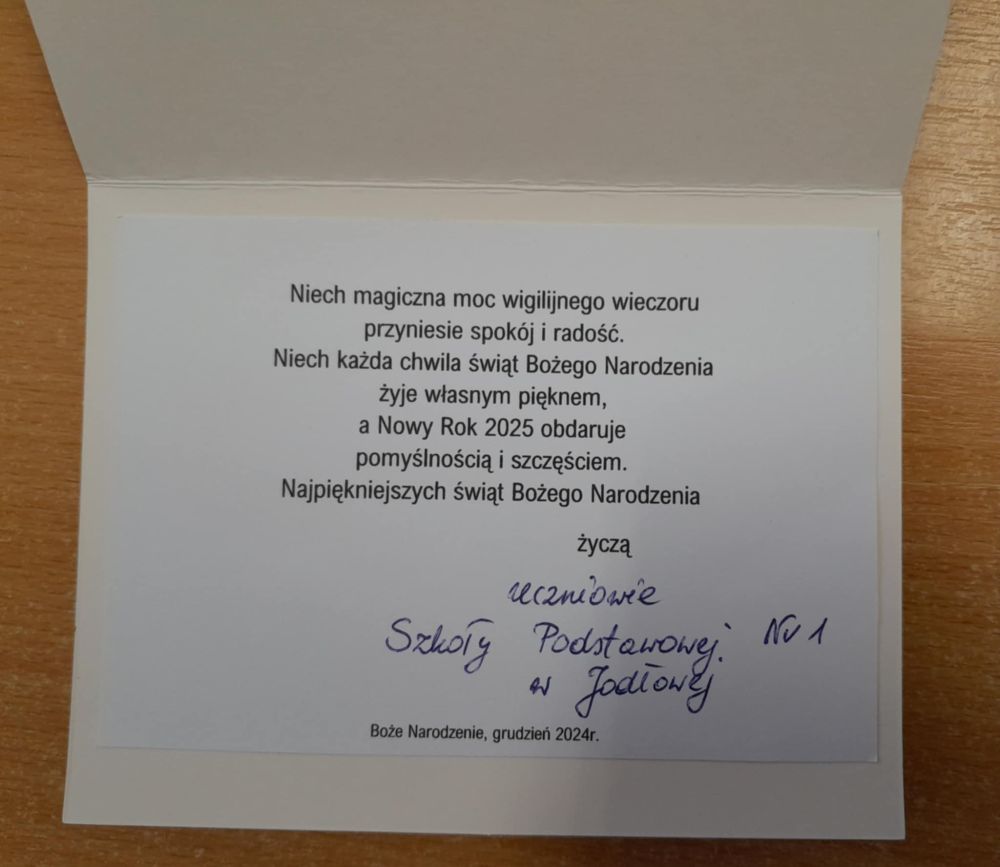 Niech magiczna moc wigilijnego wieczoru
przyniesie spokój i radość.
Niech każda chwila świąt Bożego Narodzenia
żyje własnym pięknem,
a Nowy Rok 2025 obdaruje
pomyślnością i szczęściem.
Najpiękniejszych świąt Bożego Narodzenia
życzą
uczniowie
Szkoły Podstawowej Nr 1
w Jodłowej
Boże Narodzenie, grudzień 2024r.